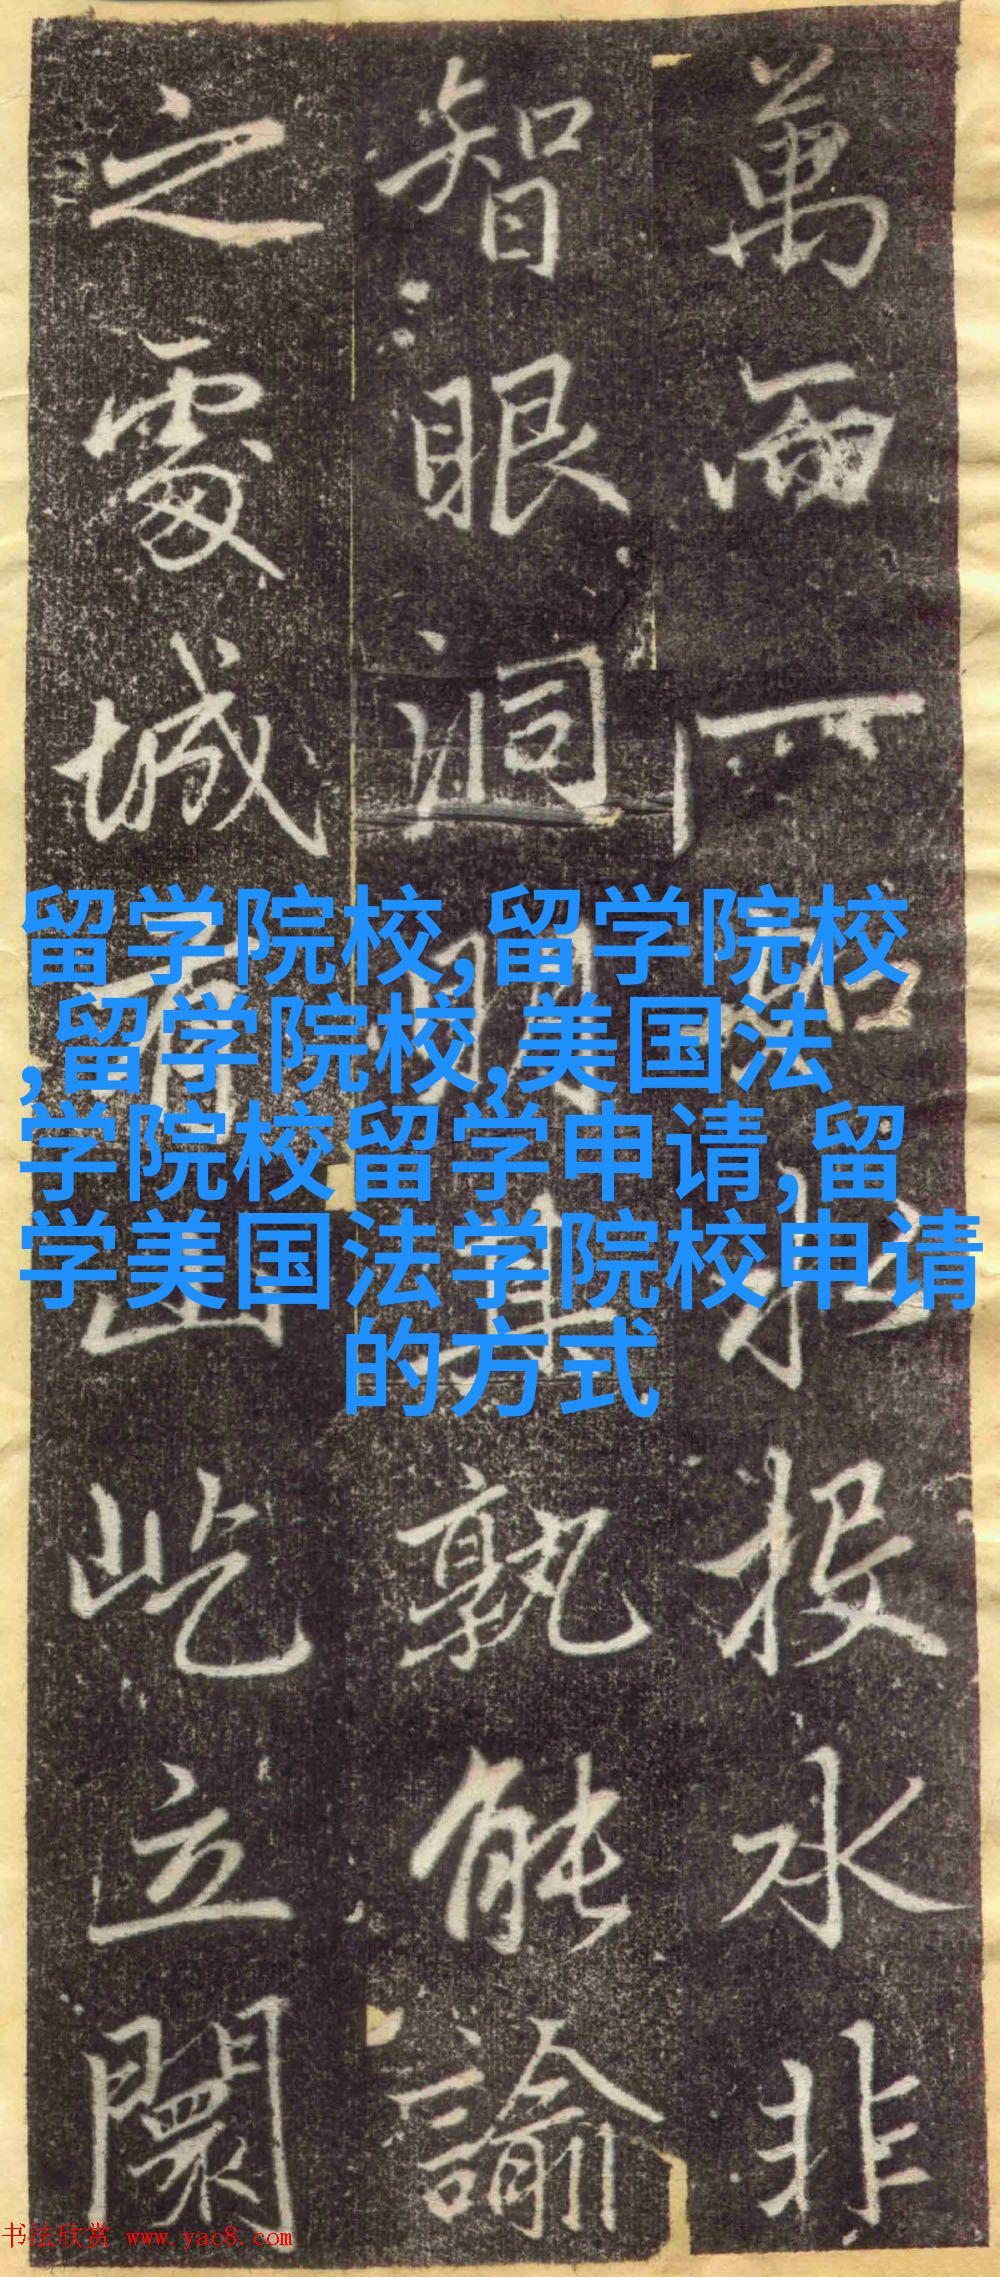 萬而一投水非
智眼洞明其孰能諭
之處城有山屹立闤
留学院校,留学院校
,留学院校,美国法
学院校留学申请,留
学美国法学院校申请
的方式
书法欣赏 www.yac8.com